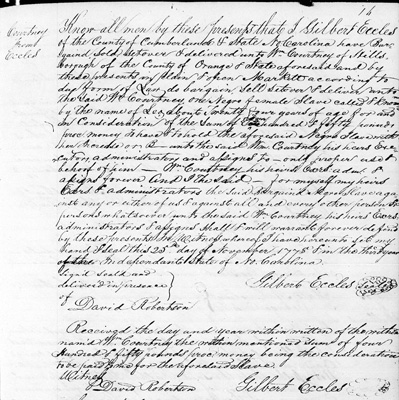 14
Courtney
from
Eccles
Know all men by these presents that I Gilbert Eccles
of the County of Cumberland & State No Carolina have Bar
gained Sold Setover & delivered unto Wm Courtney of Hills
borough of the County of Orange & State aforesaid and by
these presents in plain & open Markett according to
due form of Law, do bargain Sell Setover & deliver unto
the Said Wm Courtney one Negro female Slave called & known
by the name of about twenty four years of age for and
in Consideration of the Sum of four hundred & fifty pounds
proc money to have & to hold the aforesaid Negro Slave with
her Increase unto the said Wm Courtney his heirs Exe
cutors administrators and assigns to only proper use &
behoof of him Wm Courtney his heirs Exors admrs &
assigns forever And I the Said for my self my heirs
Exors & administrators the said Bargained Negro Slave aga
inst any or either of us & against all and every other person or
persons whatsoever unto the said Wm Courtney his heirs Exors
administrators & assigns Shall & will warrant & forever defend
by these presents In Witness whereof I have hereunto Set my
hand & Seal this 25th day of November 1778 & in the third year
of the Independant State of No Carolina
Signd Seald and
delivered in presence
of
David Robertson
Gilbert Eccles
Received the day and year within written of the within
named Wm Courtney the within mentioned Sum of four
Hundred & fifty pounds proc money being the consideration
to be paid me for the aforesaid Slave
Witness
David Robertson
Gilbert Eccles